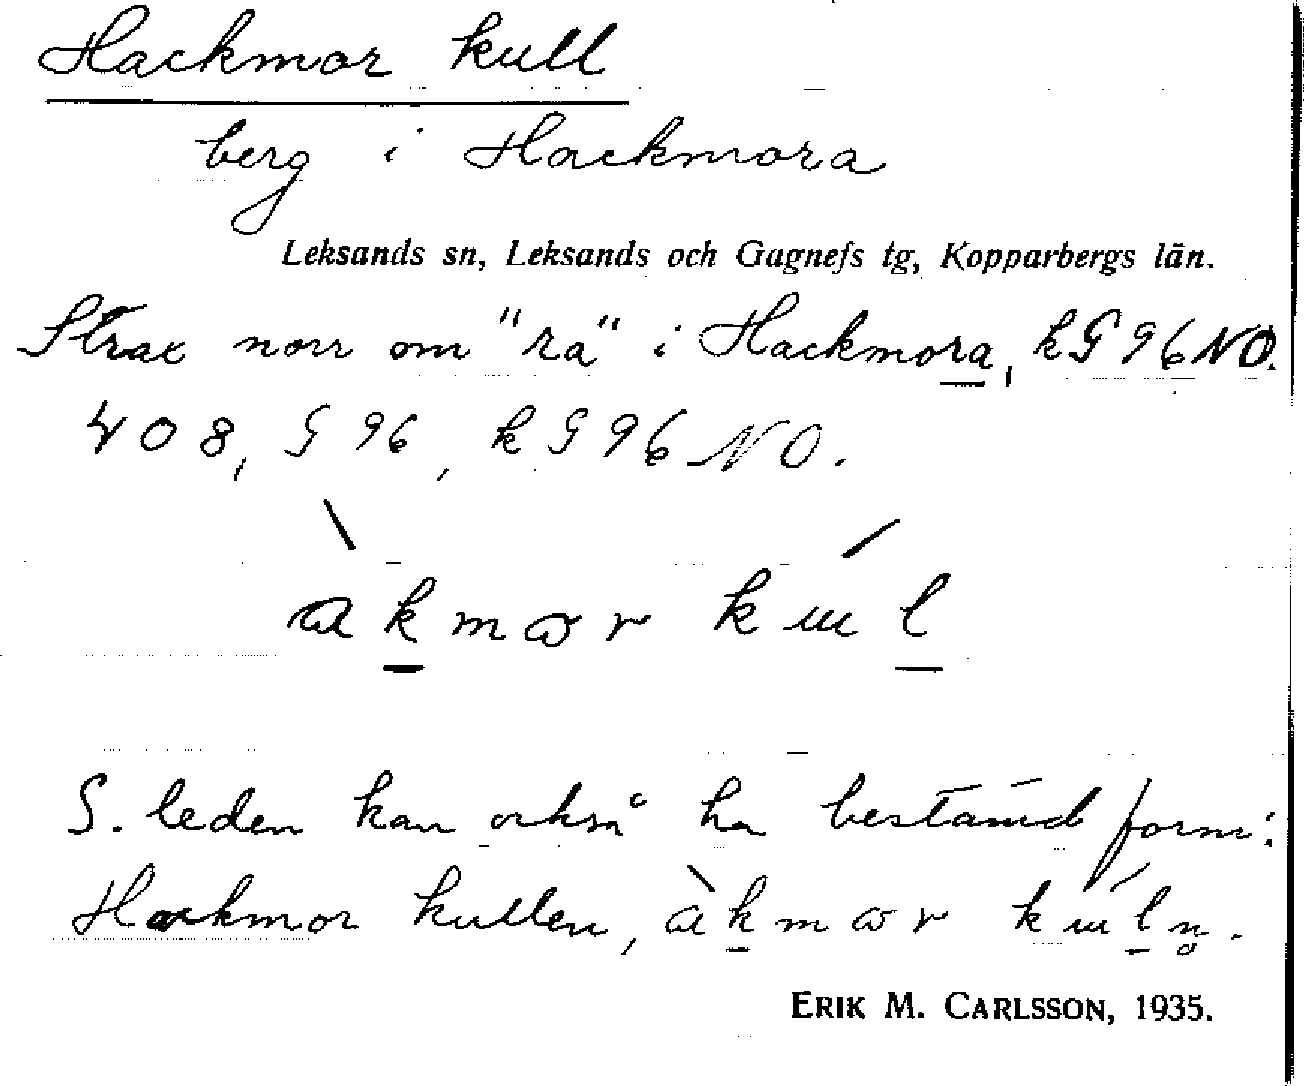 Hackmor kull
berg i Hackmora
Leksands sn, Leksands och Gagnefs tg, Kopparbergs län.
Strax norr om "ra" i Hackmora, k G 96 NO.
408, G 96, k G 96 NO.
àk̲mɷr kɯ́l̲
S. leden kan också ha bestämd form:
Hackmor kullen, àk̲mɷr kɯ́l̲n̥.
ERIK M. CARLSSON, 1935.